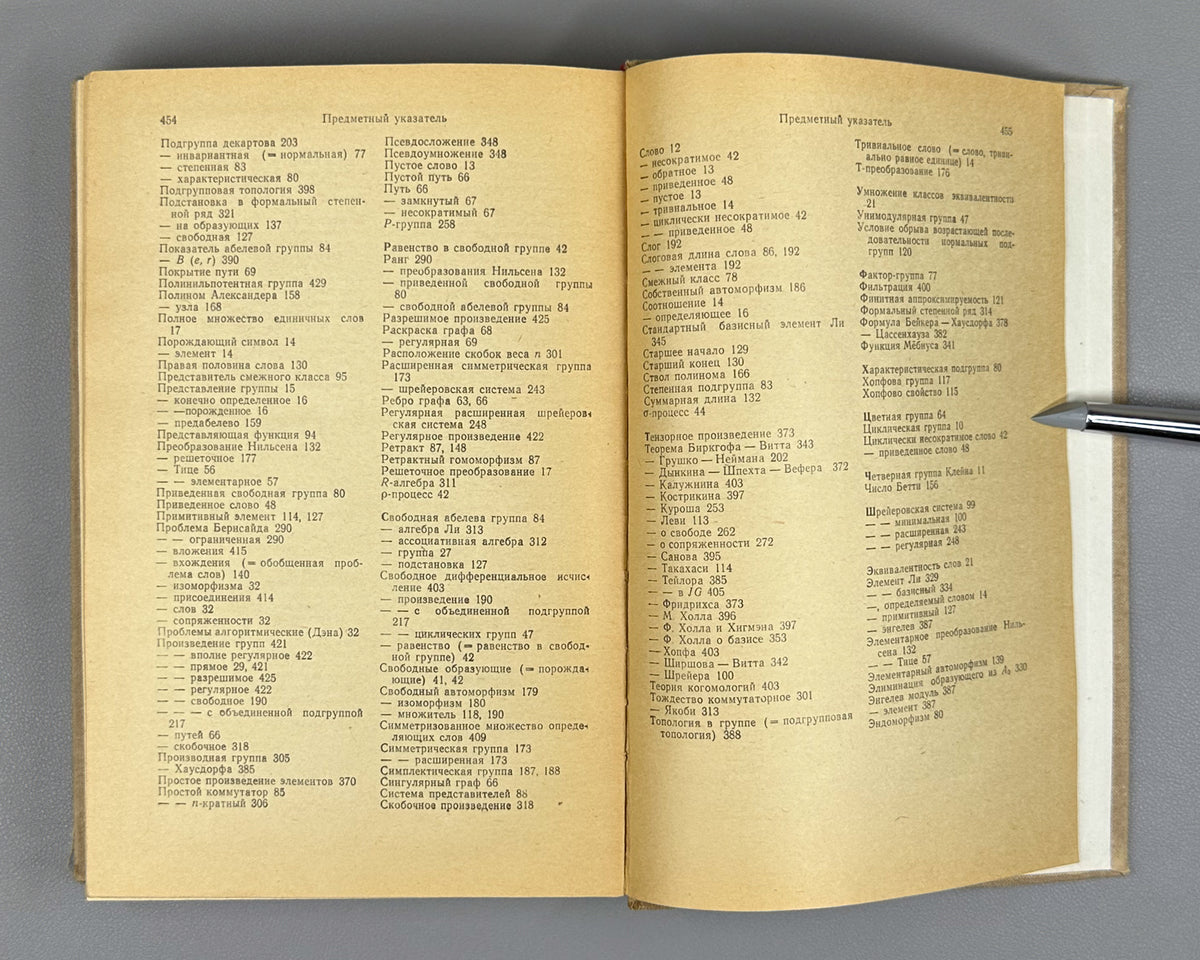 454
Предметный указатель
Подгруппа декартова 203
— инвариантная (= нормальная) 77
— степенная 83
— характеристическая 80
Подгрупповая топология 398
Подстановка в формальный степен-
ной ряд 321
— на образующих 137
— свободная 127
Показатель абелевой группы 84
— B (e, r) 390
Покрытие пути 69
Полинильпотентная группа 429
Полином Александера 158
— узла 168
Полное множество единичных слов
17
Порождающий символ 14
— элемент 14
Правая половина слова 130
Представитель смежного класса 95
Представление группы 15
— конечно определенное 16
— —порожденное 16
— предабелево 159
Представляющая функция 94
Преобразование Нильсена 132
— решеточное 177
— Тице 56
— — элементарное 57
Приведенная свободная группа 80
Приведенное слово 48
Примитивный элемент 114, 127
Проблема Берисайда 290
— — ограниченная 290
— вложения 415
— вхождения (= обобщенная проб-
лема слов) 140
— изоморфизма 32
— присоединения 414
— слов 32
— сопряженности 32
Проблемы алгоритмические (Дэна) 32
Произведение групп 421
— — вполне регулярное 422
— — прямое 29, 421
— — разрешимое 425
— — регулярное 422
— — свободное 190
— — — с объединенной подгруппой
217
— путей 66
— скобочное 318
Производная группа 305
— Хаусдорфа 385
Простое произведение элементов 370
Простой коммутатор 85
— — n-кратный 306
Псевдосложение 348
Псевдоумножение 348
Пустое слово 13
Пустой путь 66
Путь 66
— замкнутый 67
— несократимый 67
P-группа 258
Равенство в свободной группе 42
Ранг 290
— преобразования Нильсена 132
— приведенной свободной группы
80
— свободной абелевой группы 84
Разрешимое произведение 425
Раскраска графа 68
— регулярная 69
Расположение скобок веса n 301
Расширенная симметрическая группа
173
— шрейеровская система 243
Ребро графа 63, 66
Регулярная расширенная шрейеров-
ская система 248
Регулярное произведение 422
Ретракт 87, 148
Ретрактный гомоморфизм 87
Решеточное преобразование 17
R-алгебра 311
ρ-процесс 42
Свободная абелева группа 84
— алгебра Ли 313
— ассоциативная алгебра 312
— группа 27
— подстановка 127
Свободное дифференциальное исчис-
ление 403
— произведение 190
— — с объединенной подгруппой
217
— — циклических групп 47
— равенство (= равенство в свобод-
ной группе) 42
Свободные образующие (= порожда-
ющие) 41, 42
Свободный автоморфизм 179
— изоморфизм 180
— множитель 118, 190
Симметризованное множество опреде-
ляющих слов 409
Симметрическая группа 173
— — расширенная 173
Симплектическая группа 187, 188
Сингулярный граф 66
Система представителей 88
Скобочное произведение 318
Предметный указатель
455
Слово 12
— несократимое 42
— обратное 13
— приведенное 48
— пустое 13
— тривиальное 14
— циклически несократимое 42
— — приведенное 48
Слог 192
Слоговая длина слова 86, 192
— — элемента 192
Смежный класс 78
Собственный автоморфизм 186
Соотношение 14
— определяющее 16
Стандартный базисный элемент Ли
345
Старшее начало 129
Старший конец 130
Ствол полинома 166
Степенная подгруппа 83
Суммарная длина 132
σ-процесс 44
Тензорное произведение 373
Теорема Биркгофа — Витта 343
— Грушко — Неймана 202
— Дынкина — Шпехта — Вефера 372
— Калужнина 403
— Кострикина 397
— Куроша 253
— Леви 113
— о свободе 262
— о сопряженности 272
— Санова 395
— Такахаси 114
— Тейлора 385
— — в JG 405
— Фридрихса 373
— М. Холла 396
— Ф. Холла и Хигмэна 397
— Ф. Холла о базисе 353
— Хопфа 403
— Ширшова — Витта 342
— Шрейера 100
Теория когомологий 403
Тождество коммутаторное 301
— Якоби 313
Топология в группе (= подгрупповая
топология) 388
Тривиальное слово (= слово, триви-
ально равное единице) 14
Т-преобразование 176
Умножение классов эквивалентности
21
Унимодулярная группа 47
Условие обрыва возрастающей после-
довательности нормальных под-
групп 120
Фактор-группа 77
Фильтрация 400
Финитная аппроксимируемость 121
Формальный степенной ряд 314
Формула Бейкера — Хаусдорфа 378
— Цассенхауза 382
Функция Мёбиуса 341
Характеристическая подгруппа 80
Хопфова группа 117
Хопфово свойство 115
Цветная группа 64
Циклическая группа 10
Циклически несократимое слово 42
— приведенное слово 48
Четверная группа Клейна 11
Число Бетти 156
Шрейеровская система 99
— — минимальная 100
— — расширенная 243
— — регулярная 248
Эквивалентность слов 21
Элемент Ли 329
— — базисный 334
—, определяемый словом 14
— примитивный 127
— энгелев 387
Элементарное преобразование Ниль-
сена 132
— — Тице 57
Элементарный автоморфизм 139
Элиминация образующего из A₀ 330
Энгелев модуль 387
— элемент 387
Эндоморфизм 80